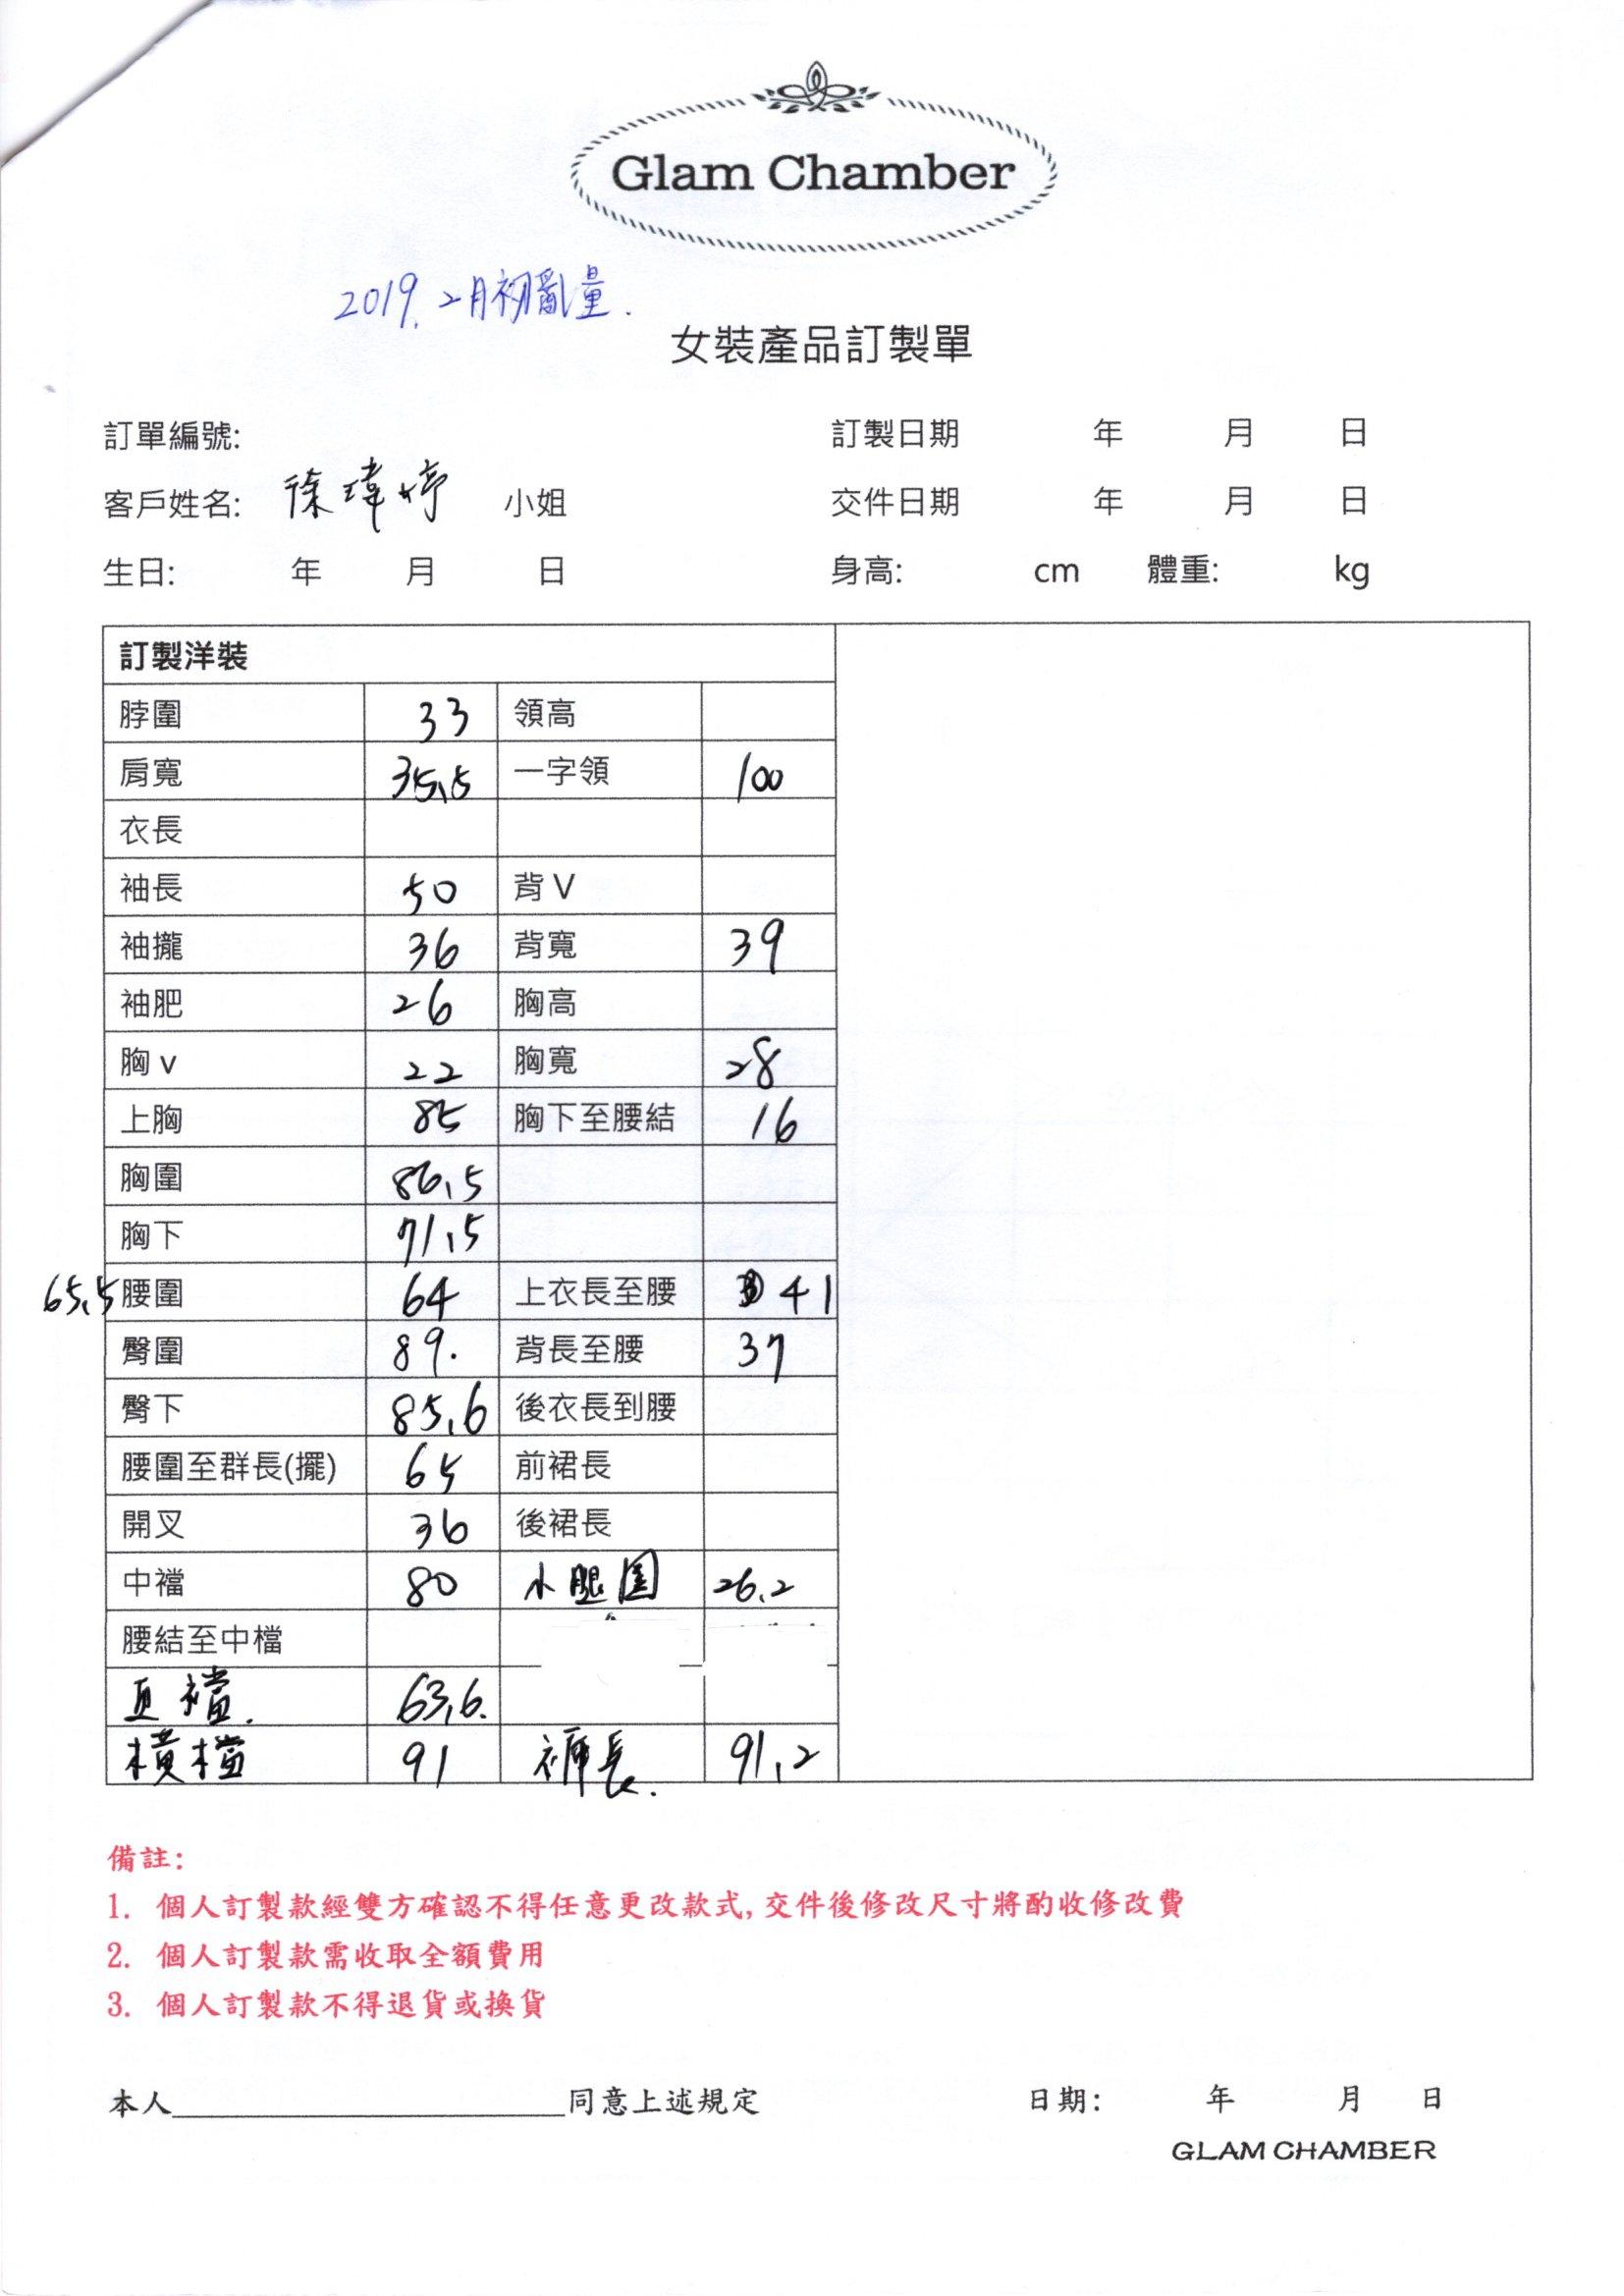 Glam Chamber
2019. 2月初亂量.
女裝產品訂製單
訂單編號: 訂製日期 年 月 日
客戶姓名: 徐瑋婷 小姐 交件日期 年 月 日
生日: 年 月 日 身高: cm 體重: kg
訂製洋裝
脖圍 33 領高
肩寬 35.5 一字領 100
衣長
袖長 50 背V
袖攏 36 背寬 39
袖肥 26 胸高
胸v 22 胸寬 28
上胸 85 胸下至腰結 16
胸圍 86.5
胸下 71.5
65.5 腰圍 64 上衣長至腰 41
臀圍 89. 背長至腰 37
臀下 85.6 後衣長到腰
腰圍至群長(擺) 65 前裙長
開叉 36 後裙長
中襠 80 小腿圍 26.2
腰結至中檔
直襠. 63.6.
橫檔 91 褲長. 91.2
備註:
1. 個人訂製款經雙方確認不得任意更改款式,交件後修改尺寸將酌收修改費
2. 個人訂製款需收取全額費用
3. 個人訂製款不得退貨或換貨
本人____________________同意上述規定 日期: 年 月 日
GLAM CHAMBER